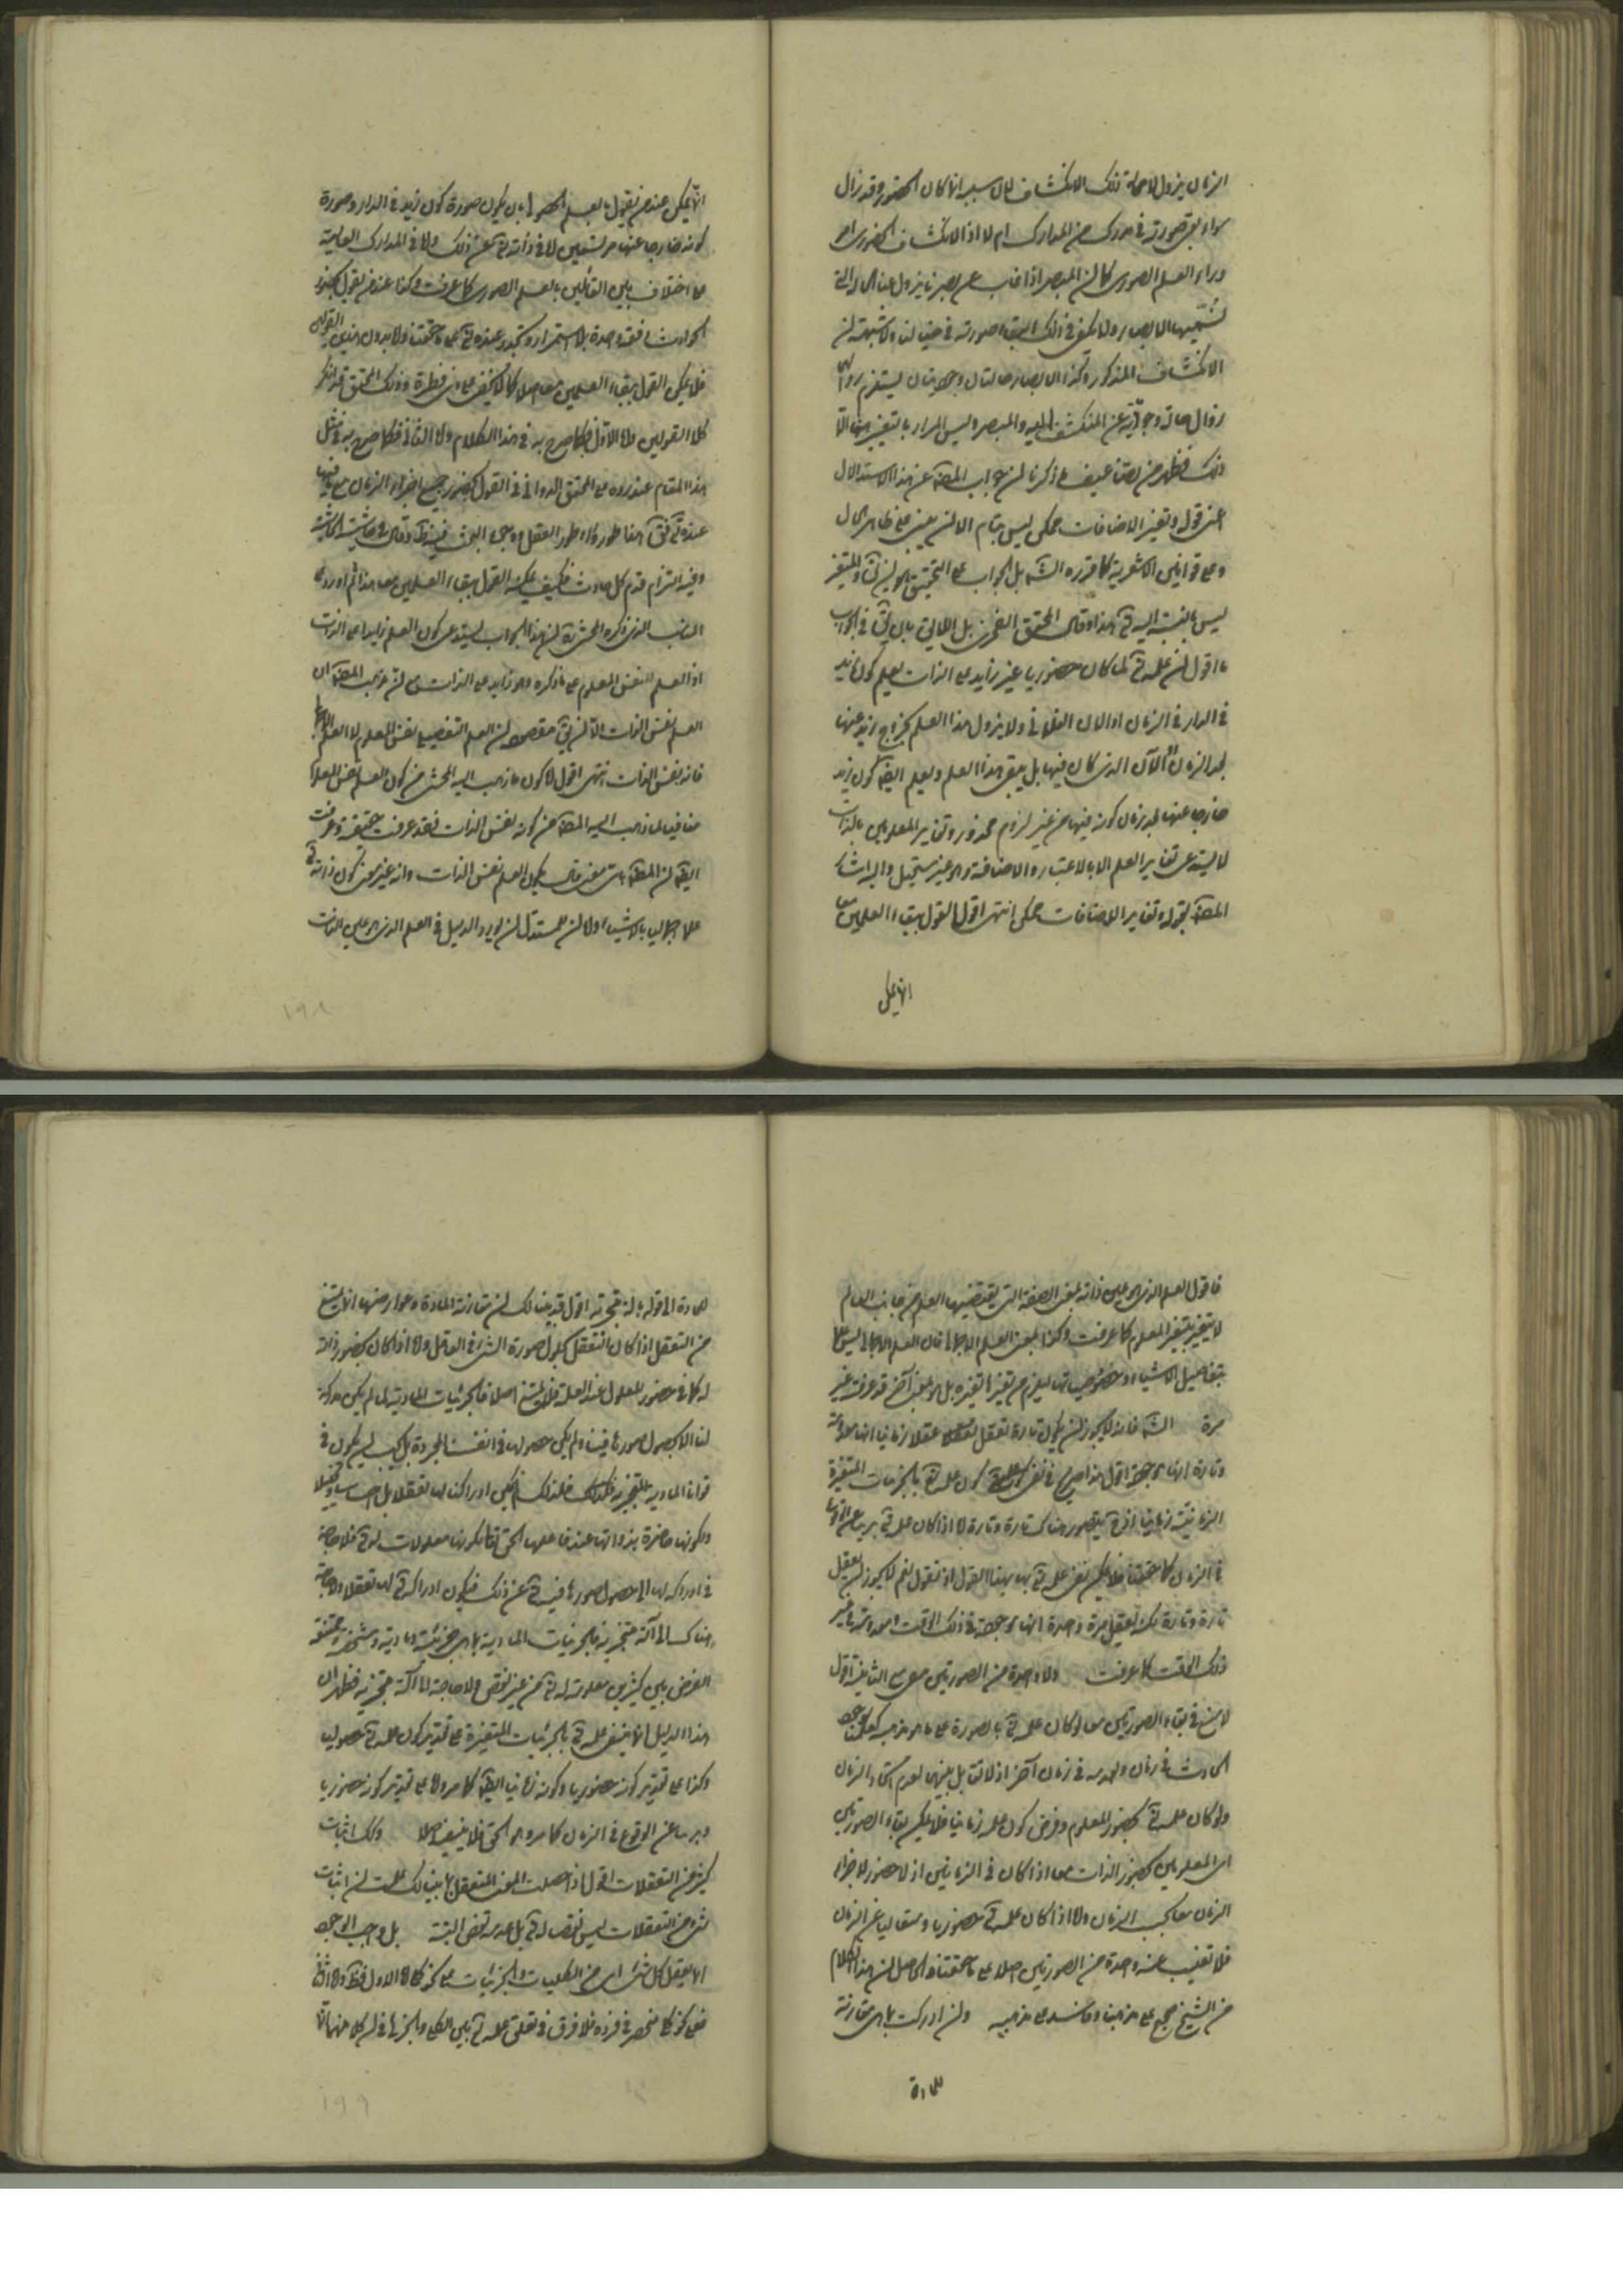 الزمان يزول لا محالة ذلك الانكشاف لان سببه انما كان الحضور وقد زال
سواء بقى صورته فى مدرك من المدارك ام لا اذ الانكشاف الحضورى امر
وراء العلم الصورى كما ان المبصر اذا غاب عن بصرنا يزول عنا الحالة التى
نسميها الابصار ولا يكفى فى ذلك البقاء صورته فى خيالنا ولا شبهة ان
الانكشاف المذكور وكذا الابصار حالتان وجوديتان يستلزم زوالهما
زوال حالة وجودية عن المنكشف اليه والمبصر وليس المراد بالتغير ههنا الا
ذلك فظهر من بصائعيف ما ذكرنا ان جواب المص عن هذا الاستدلال
اعنى قوله وتغير الاضافات ممكن ليس بتام الا ان يبنى على ظاهر الحال
وعلى قوانين الاشعرية كما قرره الش بل الجواب على التحقيق هو ان التغير
ليس بالنسبة اليه تعالى هذا وقال المحقق الفخرى بل الحالى بان يق فى الجواب
ما اقول ان علمه تعالى لما كان حضوريا غير زايد على الذات يعلم كون زيد
فى الدار فى الزمان او الآن الفلانى ولا يزول هذا العلم بخروج زيد عنها
بعد الزمان او الآن الذى كان فيها بل يبقى هذا العلم ويعلم ايضا كون زيد
خارجا عنها بعد زمان كونه فيها من غير لزوم محذور وتغاير المعلومين بالذات
لا يستدعى تغاير العلم الا بالاعتبار والاضافة وهو غير مستحيل واليه اشار
المص بقوله وتغاير الاضافات ممكن انتهى اقول القول ببقاء العلمين معا
انما يمكن
انما يمكن عند من يقول بالعلم الحصولى بان يكون صورة كون زيد فى الدار وصورة
كونه خارجا عنها مرتسمين لا فى ذاته تعالى عن ذلك ولا فى المدارك العالية
على اختلاف بين القائلين بالعلم الصورى كما عرفت وكذا عند من يقول بحضور
الحوادث دفعة واحدة بلا استمرار وتجدد عنده تعالى على ما حققنا ولا بدون هذين القولين
فلا يمكن القول ببقاء العلمين معا اصلا كما لا يخفى على ذى فطرة وذلك المحقق قد انكر
كلا القولين واما الاول فكما صرح به فى هذا الكلام واما الثانى فكما صرح به فى مثل
هذا المقام عند رده على المحقق الدوانى فى القول بحضور جميع اجزاء الزمان مع ما فيها
عنده تعالى هذا طور وراء طور العقل وجمهور البحث فيه نظر وقال فى حاشية الحاشية
وفيه التزام قدم كل حادث فكيف يمكنه القول ببقاء العلمين معا هذا ثم اورد
الذى ذكره المحشى ان هذا الجواب يستدعى كون العلم زايدا على الذات
اذ العلم نفس المعلوم على ما ذكره وهو زايد على الذات مع ان مذهب المص ان
العلم نفس الذات الا ان يق مقصوده ان العلم التفصيلى نفس المعلوم لا العلم الاجمالى
فانه نفس الذات انتهى اقول لا كون ما ذهب اليه المحشى من كون العلم نفس المعلوم
منافيا لما ذهب اليه المص من كونه نفس الذات فقد عرفت حقيقته وعرفت
ايضا ان المص باى معنى قال بكون العلم نفس الذات وانه غير معنى كون ذاته تعالى
علما اجماليا بالاشياء ولا ان للمستدل ان يورد الدليل فى العلم الذى هو عين الذات
١٩٨
فاقول العلم الذى هو عين ذاته بمعنى الصفة التى يقتضيها العلم من جانب العالم
لا يتغير بتغير المعلوم كما عرفت وكذا بمعنى العلم الاجمالى فان العلم الاجمالى ليس علما
بتفاصيل الاشياء وخصوصياتها ليلزم من تغيرها تغيره بل هو بمعنى آخر قد عرفته غير
مرة الش فانه لا يجوز ان يكون تارة تعقل عقلا زمانيا انها معدومة
وتارة انها موجودة اقول هذا صريح فى نفى كون علمه تعالى بالجزئيات المتغيرة
الزمانية زمانيا اذ ح يتصور هناك تارة وتارة لا اذا كان علمه تعالى بريئا عن الوقوع
فى الزمان كما حققنا فلا يمكن نفى علمه تعالى بها بهذا القول اذ نقول نعم لا يجوز ان يعقل
تارة وتارة لكن يعقل مرة واحدة انها موجودة فى ذلك الوقت ومعدومة فى غير
ذلك الوقت كما عرفت ولا واحدة من الصورتين مع الثانية اقول
لا منع فى بقاء الصورتين معا لو كان علمه تعالى بالصورة على ما هو مذهبه كعلمنا بوجود
الحادث فى زمان وعدمه فى زمان آخر اذ لا تقابل بينهما لعدم اتحاد الزمان
ولو كان علمه تعالى بحضور المعلوم وفرض كون علمه زمانيا فلا يمكن بقاء الصورتين
اى المعلومين بحضور الذات معا اذا كان فى الزمانين اذ لا حضور لاجزاء
الزمان معا بحسب الزمان واما اذا كان علمه تعالى حضوريا ومتعاليا عن الزمان
فلا تغيب عنه واحدة من الصورتين اصلا على ما حققناه والحاصل ان هذا الكلام
من الشيخ صحيح على مذهبنا وفاسد على مذهبه وان ادركت بما هى مقارنة
للمادة
للمادة الى قوله بالة متجزئة اقول قد بينا لك ان مقارنة المادة وعوارضها انما يمنع
من التعقل اذا كان التعقل بحلول صورة الشئ فى العاقل واما اذا كان بحضور ذاته
له كما فى حضور المعلول عند العلة فلا يمنع اصلا فالجزئيات المادية لما لم يكن مدركة
لنا الا بحصول صورها فينا ولم يكن حصولها فى انفسنا المجردة بل يجب ان يكون فى
قوانا المادية المتجزئة فلذلك لم يكن ادراكنا لها تعقلا بل احساسا وتخيلا
ولكونها حاضرة بذواتها عند فاعلها الحق تعالى لكونها معلولات له تعالى فلا حاجة
فى ادراكه لها الى حصول صورها فيه تعالى عن ذلك فيكون ادراكه تعالى لها تعقلا ولا حاجة
هناك الى آلة متجزئة فالجزئيات المادية بما هى جزئية ومادية ومتشخصة ومحتفة
الغرض بين كثيرين معلومة له تعالى من غير نقص ولا حاجة الى آلة متجزئة فظهر ان
هذا الدليل انما ينفى علمه تعالى بالجزئيات المتغيرة على تقدير كون علمه تعالى حصوليا
وكذا على تقدير كونه حضوريا وكونه زمانيا ايضا كما مر واما على تقدير كونه حضوريا
وبريئا عن الوقوع فى الزمان كما هو الحق فلا ينفيه اصلا وكذلك اثبات
كثير من التعقلات اقول اذا حصلت المعنى المتعقل بما بينا لك علمت ان اثبات
شئ من التعقلات ليس نقصا له تعالى بل عدمه نقص البتة بل واجب الوجود
انما يعقل كل شئ اى من الكليات والجزئيات على نحو كلى اما الاول فظ واما الثانى
فعلى نحو كلى منحصر فى فرده فلا فرق فى تعلق علمه تعالى بين الكلى والجزئى فى ان كلا منهما
١٩٩